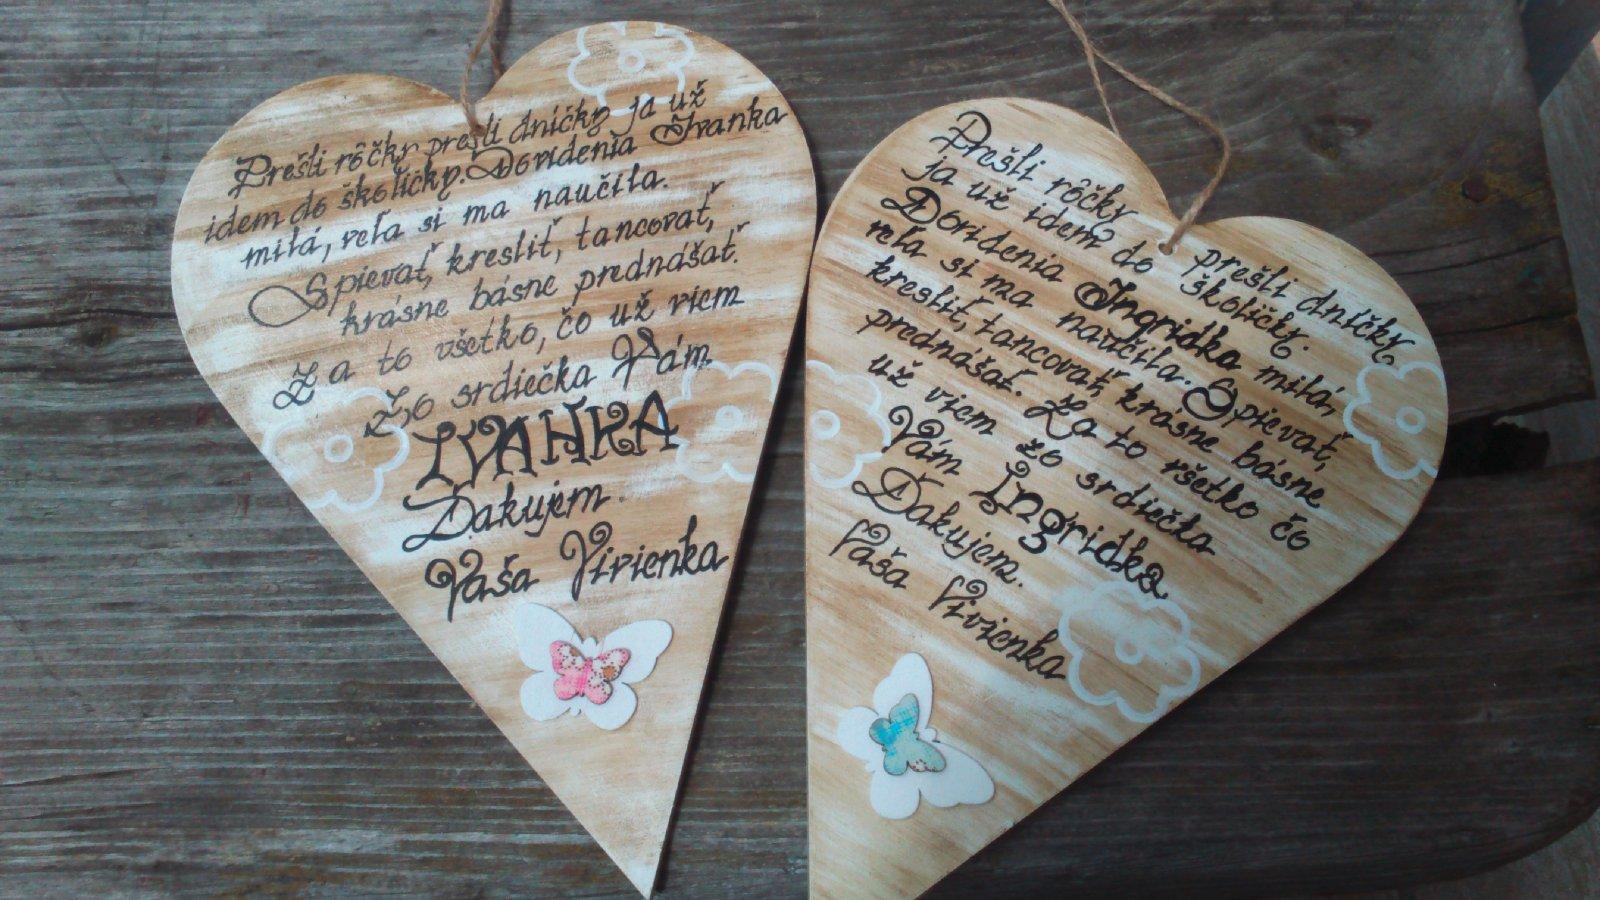 Prešli rôčky prešli dníčky ja už
idem do školičky. Dovidenia Ivanka
milá, veľa si ma naučila.
Spievať, kresliť, tancovať,
krásne básne prednášať.
Za to všetko, čo už viem
Zo srdiečka Vám
IVANKA
Ďakujem.
Vaša Vivienka
Prešli rôčky prešli dníčky
ja už idem do školičky.
Dovidenia Ingridka milá,
veľa si ma naučila. Spievať,
kresliť, tancovať, krásne básne
prednášať. Za to všetko čo
už viem zo srdiečka
Vám Ingridka
Ďakujem.
Vaša Vivienka